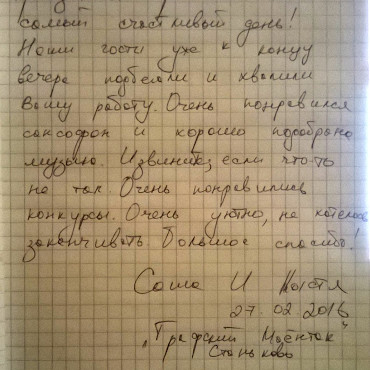 самый счастливый день!
Наши гости уже к концу
вечера подбегали и хвалили
Вашу работу. Очень понравился
саксофон и хорошо подобрано
музыка. Извините, если что-то
не так. Очень понравились
конкурсы. Очень уютно, не хотелось
заканчивать. Большое спасибо!
Саша И Настя
27.02.2016
"Графский Маёнток"
Станьково